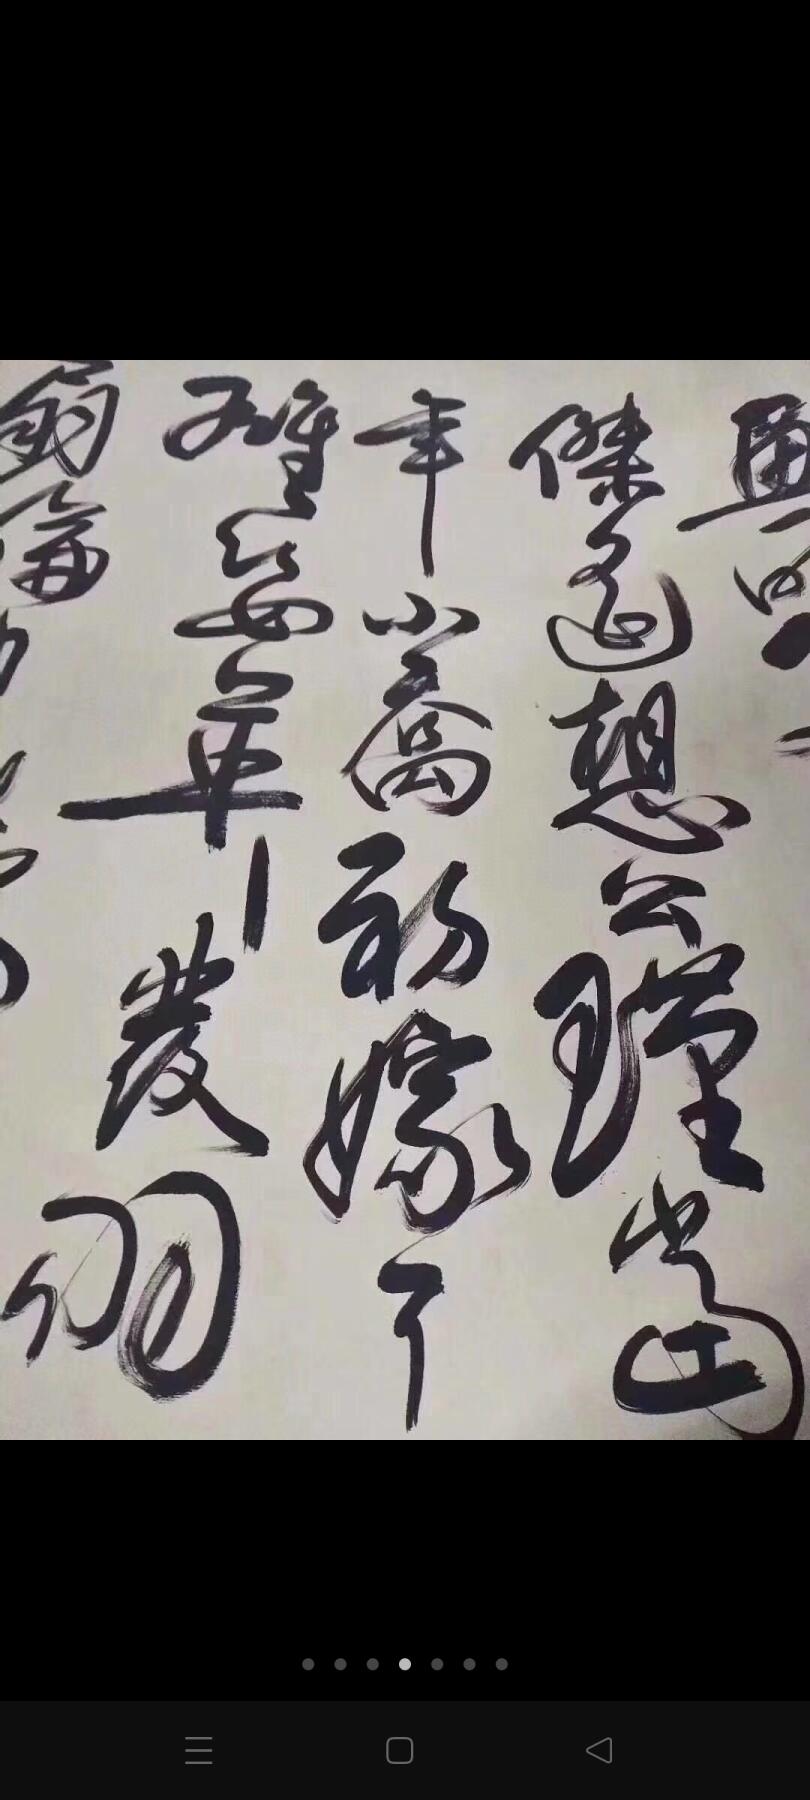 畫
傑遙想公瑾當
年小喬初嫁了
雄姿英發羽
扇綸